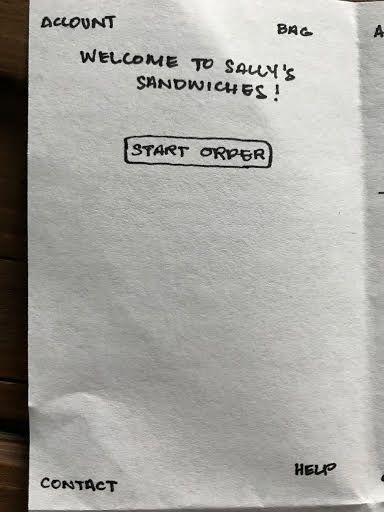 ACCOUNT
BAG
WELCOME TO SALLY'S
SANDWICHES!
START ORDER
HELP
CONTACT